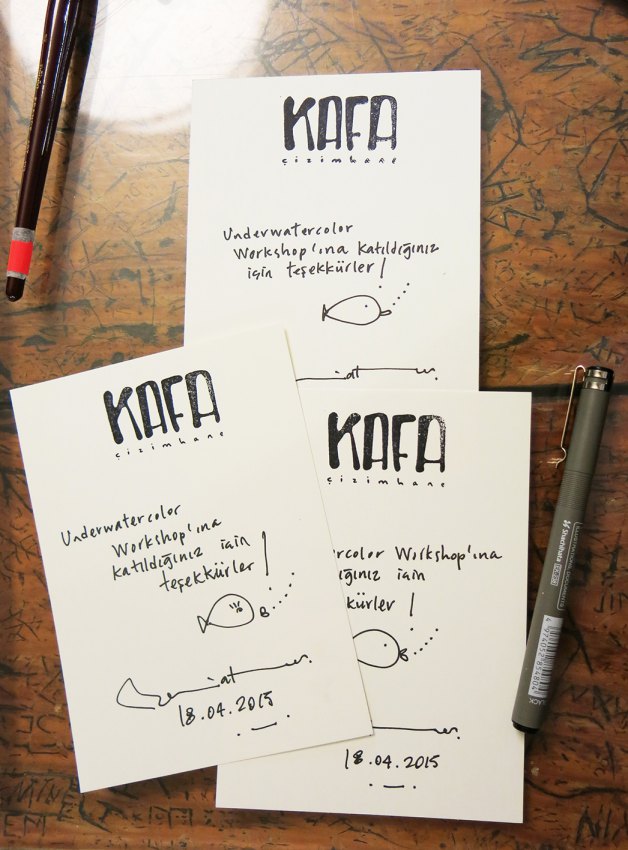 KAFA
çizimhane
Underwatercolor
Workshop'ına katıldığınız
için teşekkürler!
KAFA
çizimhane
Underwatercolor
Workshop'ına
katıldığınız için
teşekkürler!
18.04.2015
KAFA
çizimhane
rcolor Workshop'ına
ığınız için
kkürler!
18.04.2015
Shachihata
4 974052 854804
BLACK